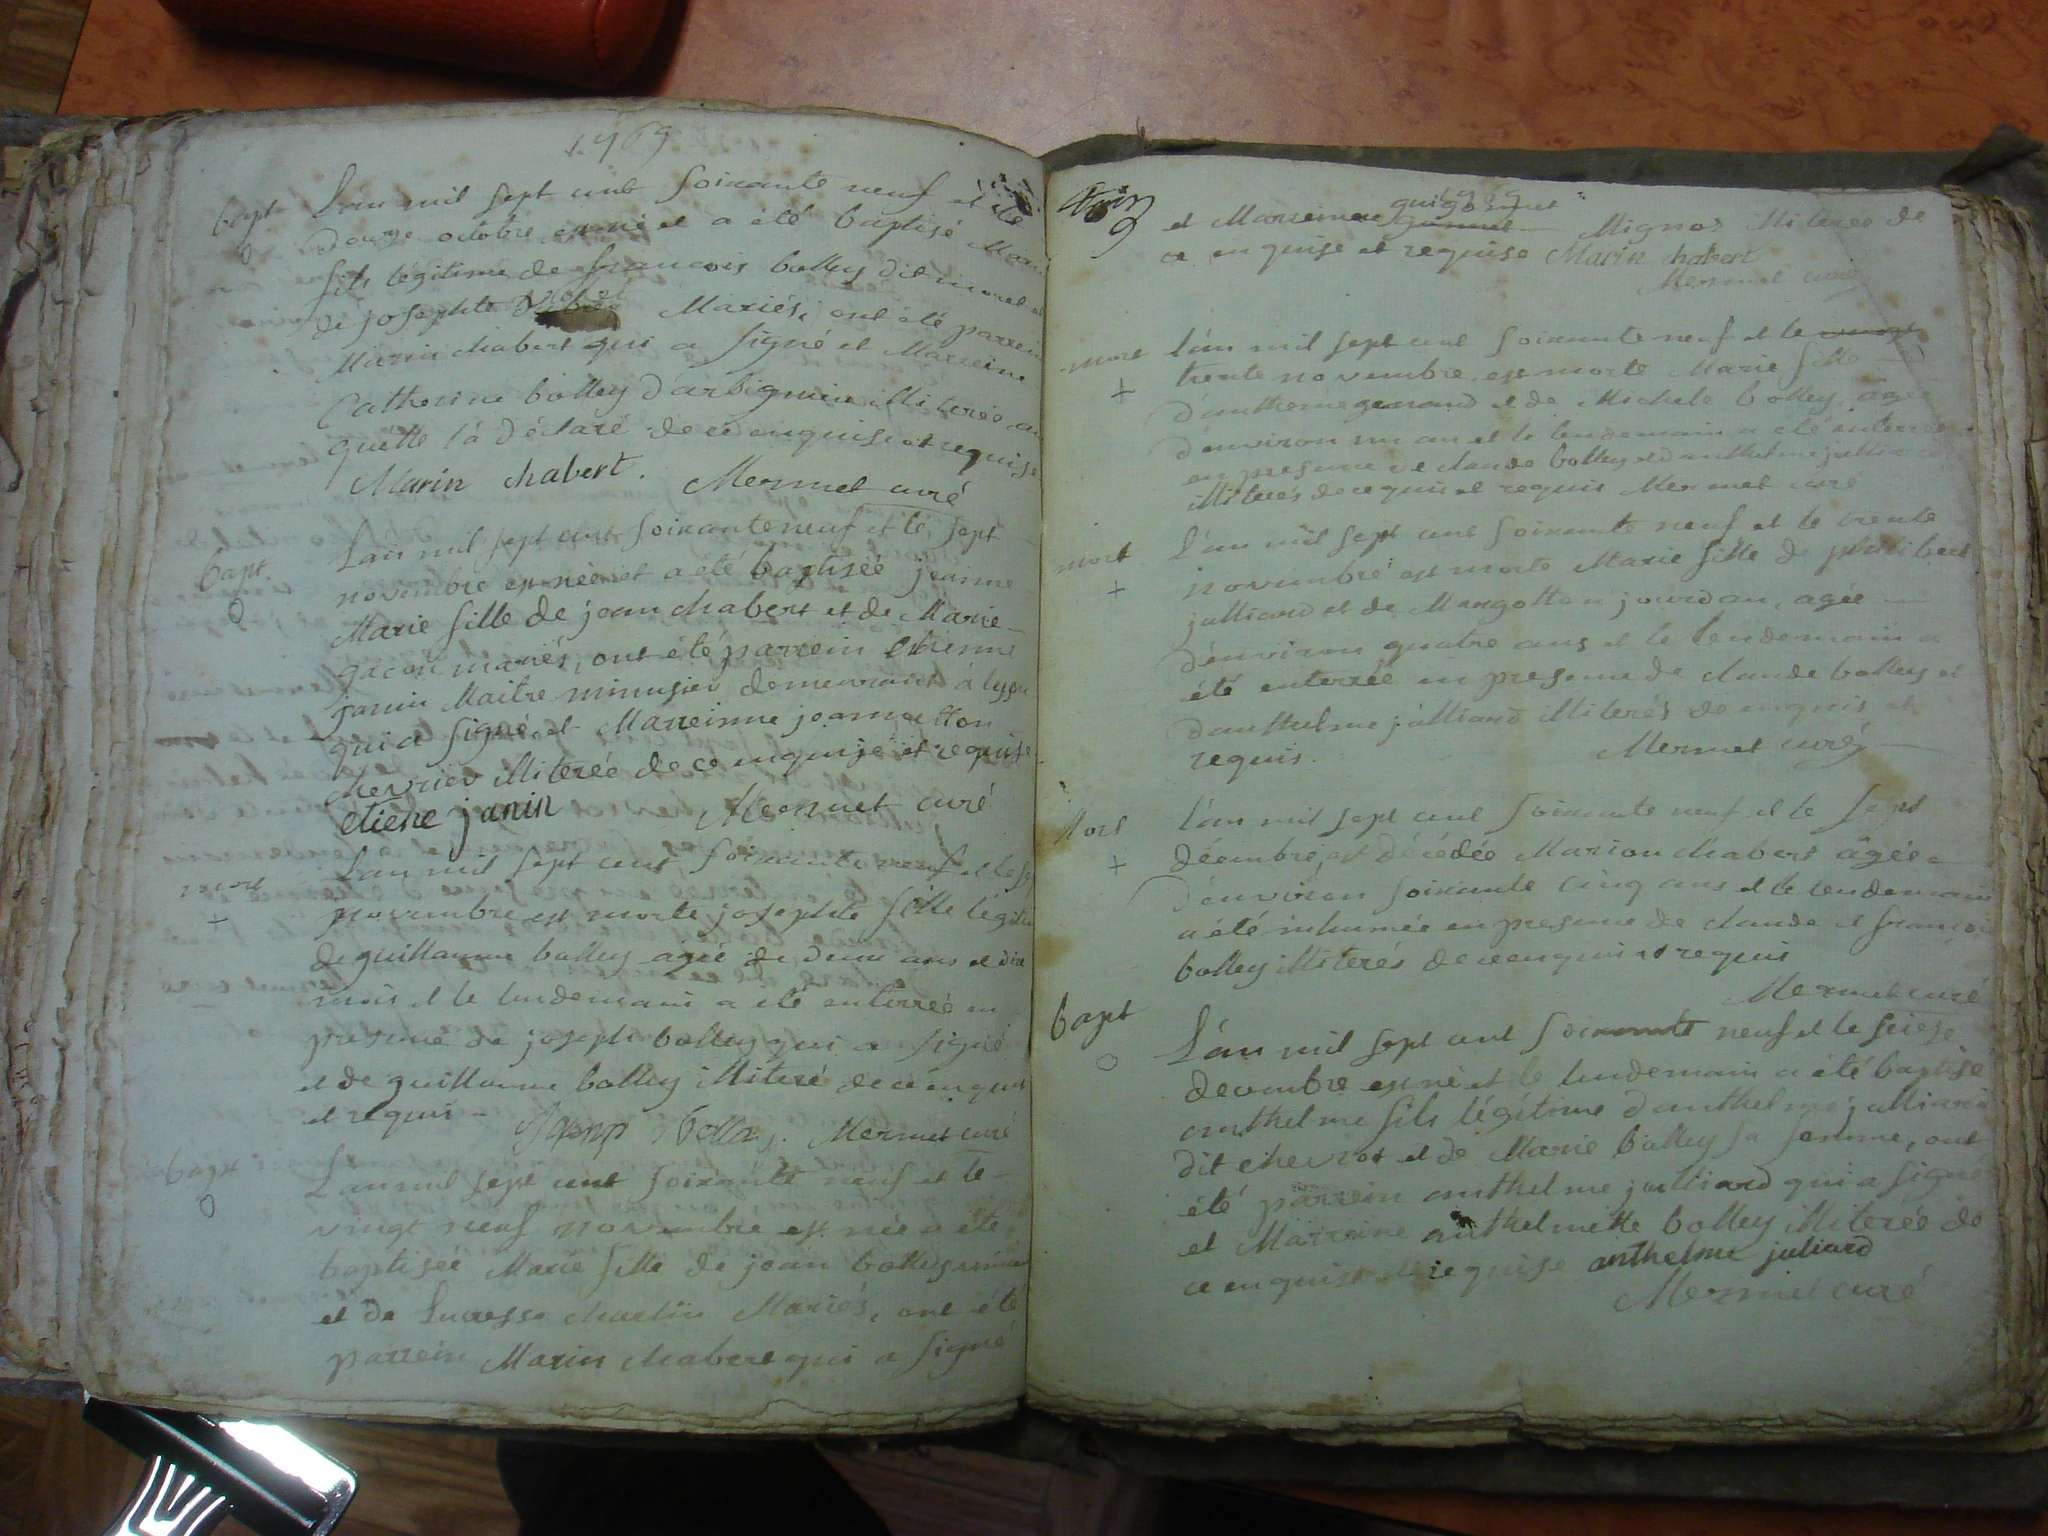 1769
bapt
L'an mil sept cent soixante neuf et le
douze octobre est né et a été baptisé Marin
fils légitime de francois bolley dit minet et
de josephte Mariés, ont été parrein
Marin chabert qui a signé et Marreine
Catherine bolley d'arbignieu illiterée
quelle l'a déclaré de ce enquise et requise
Marin chabert. Mermet curé
bapt.
L'an mil sept cent soixante neuf et le sept
novembre est née et a été baptiséé jeanne
Marie fille de jean chabert et de Marie
gacon mariés, ont été parrein etienne
janin Maitre minusier demeurant à
qui a signé et Marreinne jeannetton
chevrier illiterée de ce enquise et requise
etiene janin Mermet curé
mort
+
L'an mil sept cent soixante neuf et le
novembre est morte josephte fille légitime
de guillaume bolley agée de deux ans et dix
mois et le lendemain a été enterrée en
presence de joseph bolley qui a signé
et de guillaume bolley illiteré de ce enquis
et requis Mermet curé
bapt
L'an mil sept cent soixante neuf et le
vingt neuf novembre est née a été
baptiséé Marie fille de jean bolley
et de Lucresse Mariés, ont été
parrein Marin chabert qui a signé
1769
et Marreinne guigonnet Mignot illiterée de
ce enquise et requise Marin chabert
Mermet curé
mort
+
L'an mil sept cent soixante neuf et le
trente novembre est morte Marie fille
d'antheme genand et de Michele bolley, agée
d'environ un an et le lendemain a été enterrée
en presence de claude bolley et d'anthelme julliard
illiterés de ce enquis et requis Mermet curé
mort
+
L'an mil sept cent soixante neuf et le trente
novembre est morte Marie fille de philibert
julliard et de Margotton jourdan, agée
d'environ quatre ans et le lendemain a
été enterrée en presence de claude bolley et
d'anthelme julliard illiterés de enquis et
requis. Mermet curé
Mort
+
L'an mil sept cent soixante neuf et le sept
décembre, est décédée Marion chabert agée
d'environ soixante cinq ans et le lendemain
a été inhumée en presence de claude et francois
bolley illiterés de ce enquis et requis
Mermet curé
bapt
L'an mil sept cent soixante neuf et le seize
decembre est né et le lendemain a été baptisé
anthelme fils légitime d'anthelme julliard
dit chevrot et de Marie bolley sa femme, ont
été parrein anthelme julliard qui a signé
et Marraine anthelmette bolley illiterée de
ce enquise et requise anthelme juliard
Mermet curé